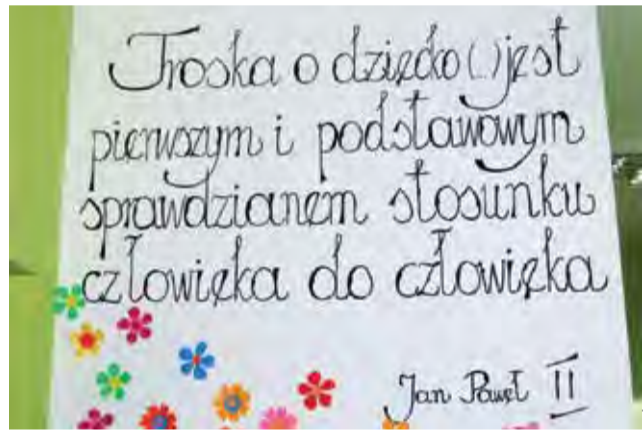 Troska o dziecko (..) jest
pierwszym i podstawowym
sprawdzianem stosunku
człowieka do człowieka
Jan Paweł II